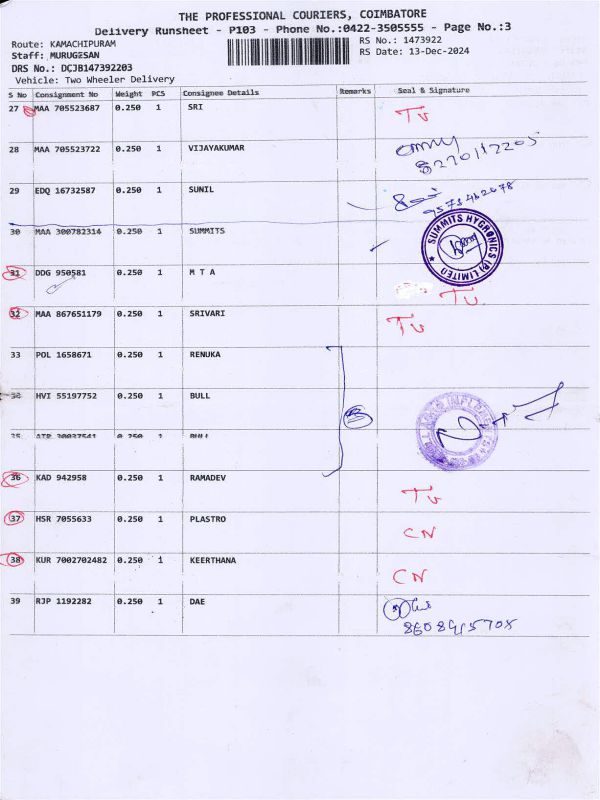 THE PROFESSIONAL COURIERS, COIMBATORE
Delivery Runsheet - P103 - Phone No.:0422-3505555 - Page No.:3
Route: KAMACHIPURAM
RS No.: 1473922
Staff: MURUGESAN
RS Date: 13-Dec-2024
DRS No.: DCJB147392203
Vehicle: Two Wheeler Delivery
S No Consignment No Weight PCS Consignee Details Remarks Seal & Signature
27 MAA 705523687 0.250 1 SRI
28 MAA 705523722 0.250 1 VIJAYAKUMAR
29 EDQ 16732587 0.250 1 SUNIL
30 MAA 300782314 0.250 1 SUMMITS
SUMMITS HYGRONICS (P) LIMITED
31 DDG 950581 0.250 1 M T A
32 MAA 867651179 0.250 1 SRIVARI
33 POL 1658671 0.250 1 RENUKA
HVI 55197752 0.250 1 BULL
35 ATP 30037541 0.250 1 BULL
36 KAD 942958 0.250 1 RAMADEV
37 HSR 7055633 0.250 1 PLASTRO CN
38 KUR 7002702482 0.250 1 KEERTHANA CN
39 RJP 1192282 0.250 1 DAE